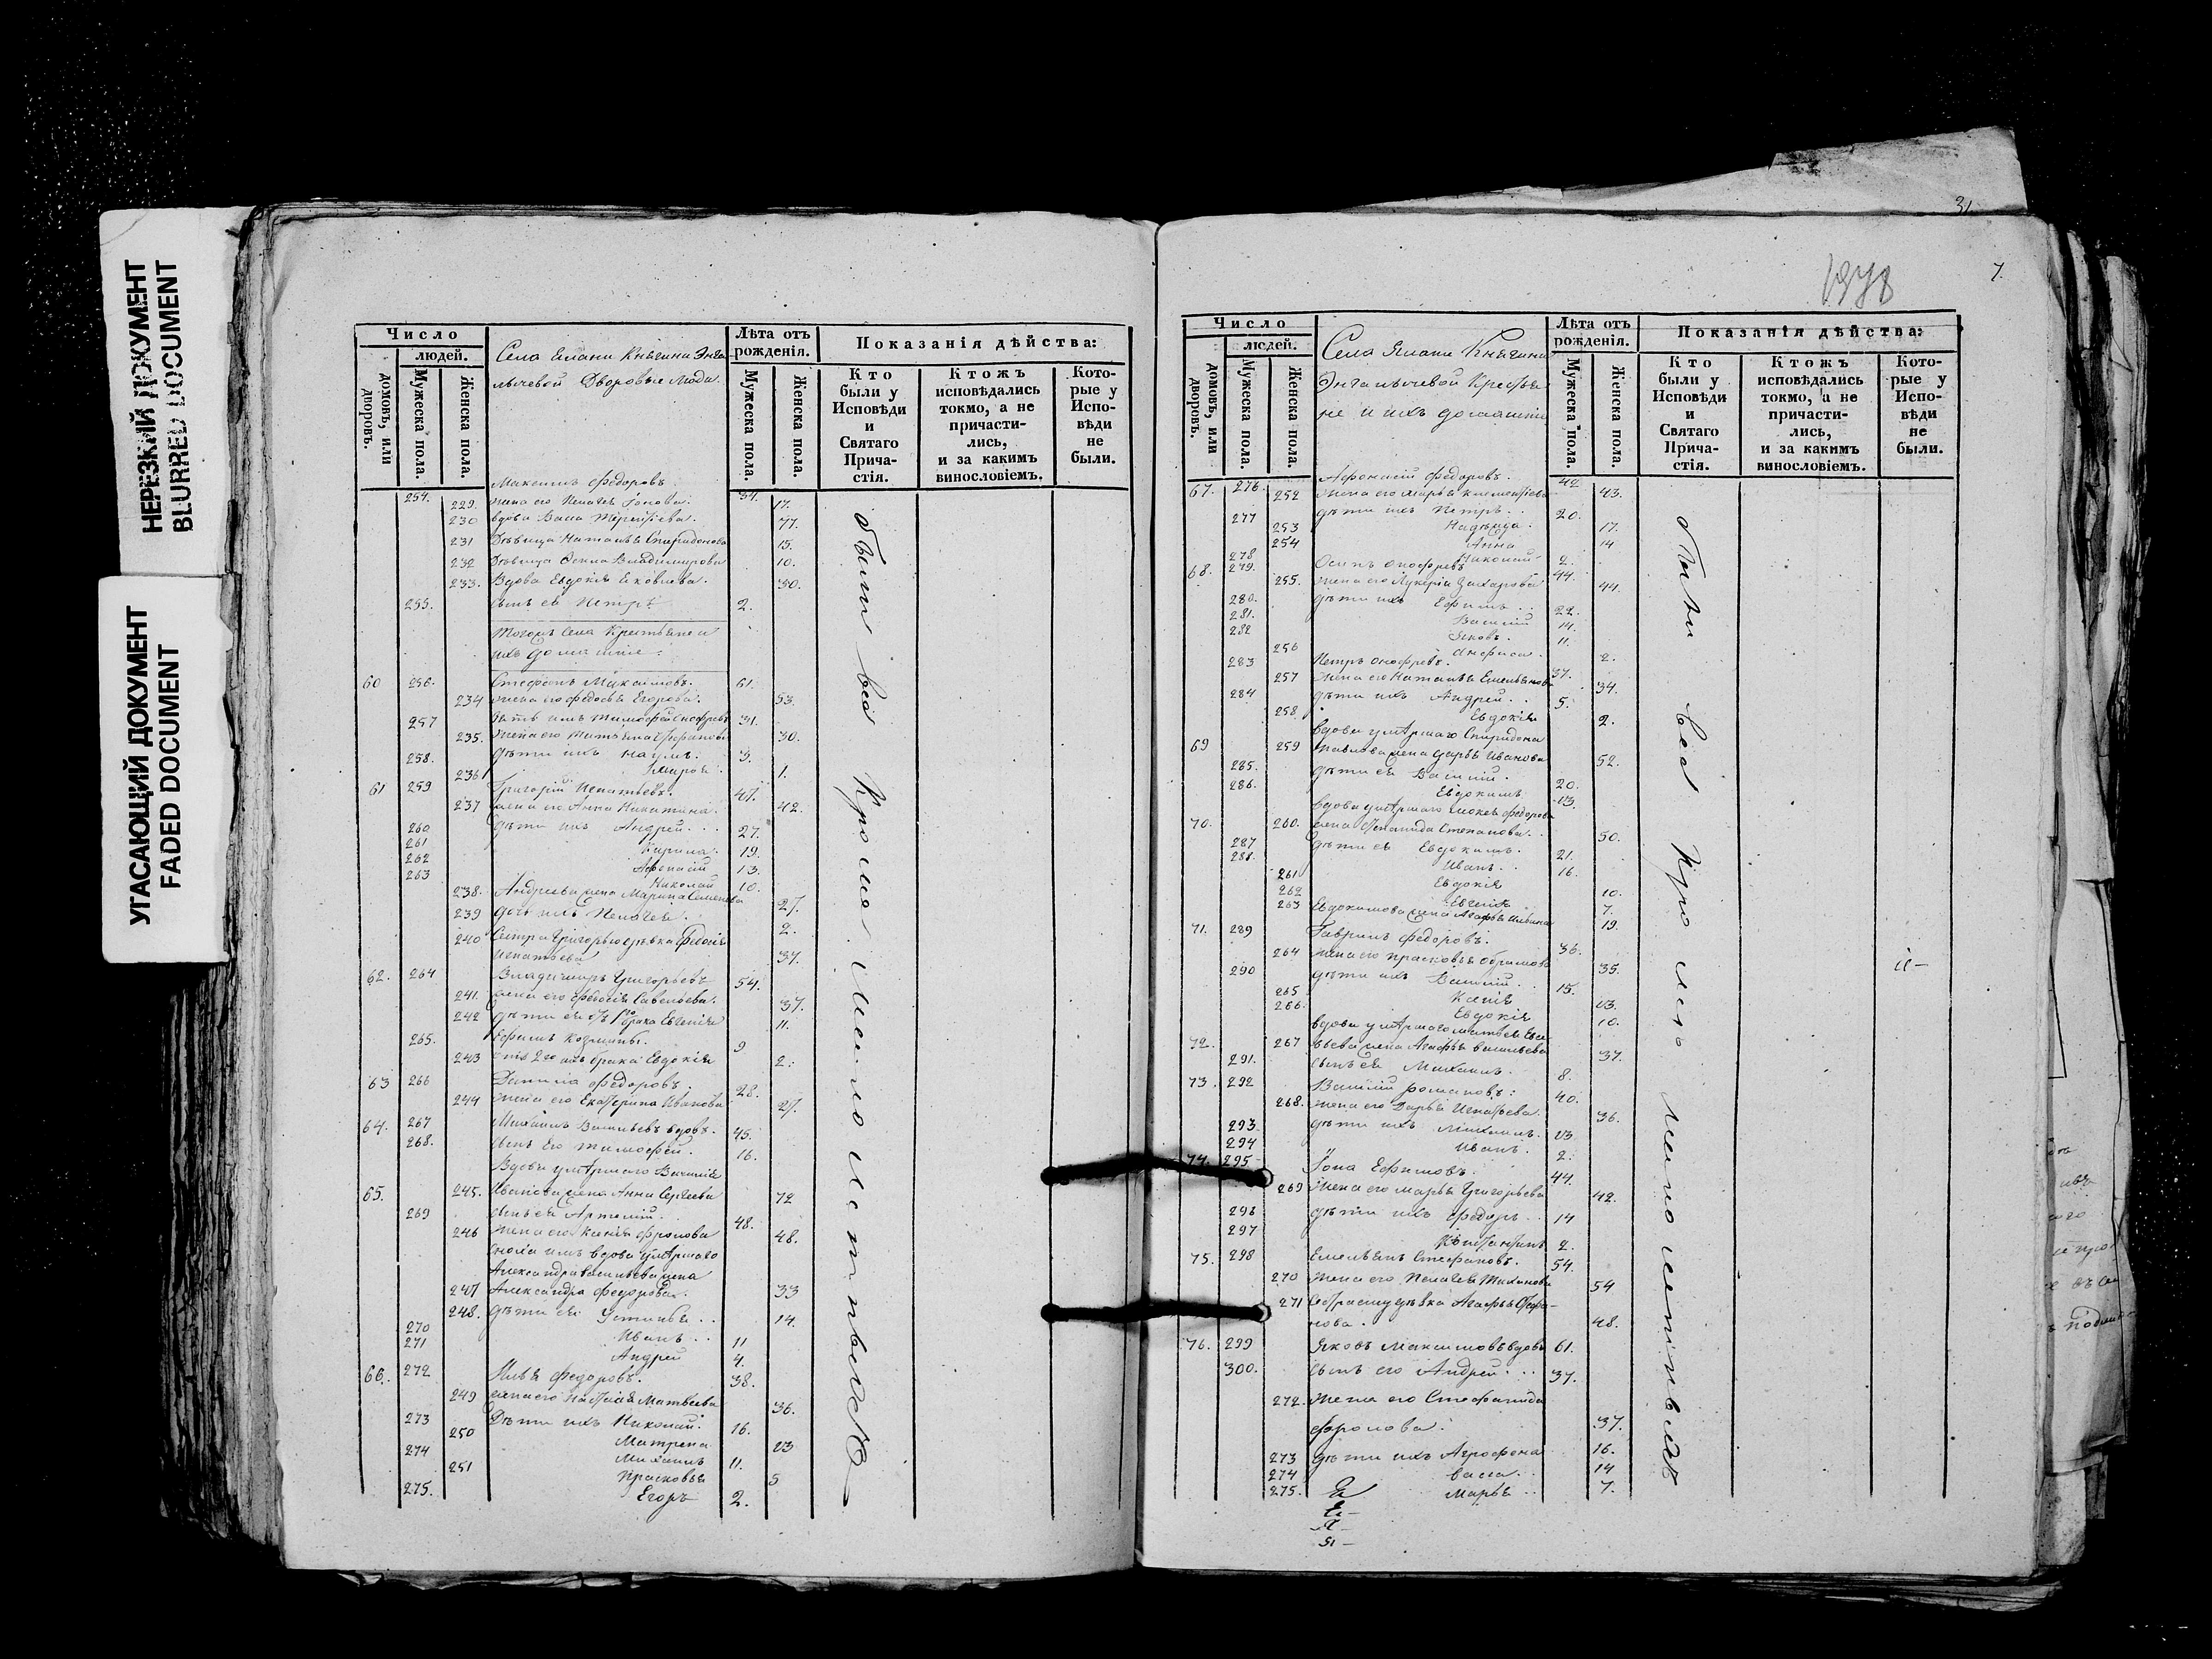 НЕРЕЗКИЙ ДОКУМЕНТ
BLURRED DOCUMENT
УГАСАЮЩИЙ ДОКУМЕНТ
FADED DOCUMENT
Число
людей.
домовъ, или дворовъ.
Мужеска пола.
Женска пола.
Села Елани Княгини Энга
лычевой Дворовые люди.
Лѣта отъ рожденія.
Мужеска пола.
Женска пола.
Показанія дѣйства:
Кто были у Исповѣди и Святаго Прича-стія.
Ктожъ исповѣдались токмо, а не причасти-лись, и за какимъ винословіемъ.
Кото-рые у Испо-вѣди не были.
Максимъ Федоровъ
254. 34.
229. жена его Пелагея 17.
230 вдова Васа Терентіева. 77.
231 Дѣвица Наталья Спиридонова 15.
232 Дѣвица Владимирова 10.
233. Вдова Евдокія Яковлева. 30.
255. сынъ ея Петръ 2.
Тогожъ Села Крестьяне и
ихъ домашніе.
60 256. Стефанъ Максимовъ. 61.
234 жена его Федосья Егорова. 53.
257 зять ихъ Тимофей Онофревъ 31.
235. жена его Татьяна Стефанова 30.
258. дѣти ихъ Наумъ. 3.
236 1.
61 259 Григорій Игнатьевъ. 47.
237 жена его Анна Никитина. 42.
260 дѣти ихъ Андрей... 27.
261 Кирила. 19.
262 Афонасій 13.
263 Николай 10.
238. Андреева жена Марина Семенова 27.
239 дочь ихъ Пелагея. 2.
240 Сестра Григорью дѣвка Федосія
Игнатьева 37.
62. 264 Владимиръ Григорьевъ 54.
241. жена его Федосія Савельева. 37.
242 дѣти ея отъ 1го брака Евгенія 11.
265. Ефимъ Козмины. 9
243 отъ 2го ихъ брака Евдокія 2.
63 266 Данила Федоровъ. 28.
244 жена его Екатерина Иванова 27.
64. 267 Михаилъ Васильевъ вдовъ. 45.
268. сынъ его Тимофей. 16.
Вдова умершаго Василія
65. 245. Иванова жена Анна Сергеева 72
269 сынъ ея Артемій. 48.
246 жена его Ксенія Фролова 48.
сноха имъ вдова умершаго
Александра Васильева жена
247 Александра Федорова. 33
248. дѣти ея Устинья.. 14.
270 Иванъ.. 11
271 Андрей 4.
66. 272 Илья Федоровъ. 38.
249 жена его Настасія Матвеева 36.
273 Дѣти ихъ Николай. 16.
250 Матрена 13
274 Михаилъ 11.
251 Прасковья 5
275. Егоръ 2.
были всѣ Кромѣ малолетныхъ
31
7.
Число
людей.
домовъ, или дворовъ.
Мужеска пола.
Женска пола.
Села Елани Княгини
Энгалычевой Крестья
не и ихъ домашніе
Лѣта отъ рожденія.
Мужеска пола.
Женска пола.
Показанія дѣйства:
Кто были у Исповѣди и Святаго Прича-стія.
Ктожъ исповѣдались токмо, а не причасти-лись, и за какимъ винословіемъ.
Кото-рые у Испо-вѣди не были.
67. 276. Афонасій Федоровъ. 42
252 жена его Марья Климентіева 43.
277 дѣти ихъ Петръ.. 20.
253 Надежда. 17.
254 Анна 14
278 Николай 2.
68. 279. Осипъ Онофревъ 44.
255. жена его Лукерія Захарова 44.
280. дѣти ихъ Ефимъ.. 22.
281. Василій 14.
282 Яковъ. 11.
256 Анфиса. 2.
283 Петръ Онофревъ. 37.
257 жена его Наталья Емельянова 34.
284 дѣти ихъ Андрей.. 5.
258 Евдокія 2.
вдова умершаго Спиридона
69 259 Павлова жена Дарья Иванова 52.
285. дѣти ея Василій. 20.
286. Евдокимъ 13.
вдова умершаго Мокея Федорова
70. 260. жена Степанида Степанова. 50.
287 дѣти ея Евдокимъ. 21.
288. Иванъ. 16.
261 Евдокія 10.
262 Евгенія 7.
263 Евдокимова жена Агафья Ильина 19.
71. 289 Гаврилъ Федоровъ. 36.
264 жена его Прасковья Обрамова 35.
290 дѣти ихъ Василій. 15.
265 Ксенія 13.
266. Евдокія 10.
вдова умершаго Матвея Евсе
72. 267 вьева жена Агафья Васильева 37.
291. сынъ ея Михаилъ. 8.
73. 292 Василій Романовъ: 40.
268. жена его Дарья Игнатьева. 36.
293 дѣти ихъ Михаилъ. 13
294 Иванъ. 2.
74. 295 Іона Ефимовъ. 44.
269 жена его Марья Григорьева 42.
296 дѣти ихъ Федоръ.. 14
297 Константинъ 2.
75. 298 Емельянъ Стефановъ. 54.
270 жена его Пелагея Тиханова 54
271 Сестра ему дѣвка Агафья Стефа-
нова. 48.
76. 299 Яковъ Максимовъ вдовъ 61.
300. сынъ его Андрей... 37.
272. жена его Стефанида
Фролова. 37.
273 дѣти ихъ Агрофена 16.
274 Васса.. 14
275. Марья.. 7.
были всѣ Кромѣ малолетныхъ